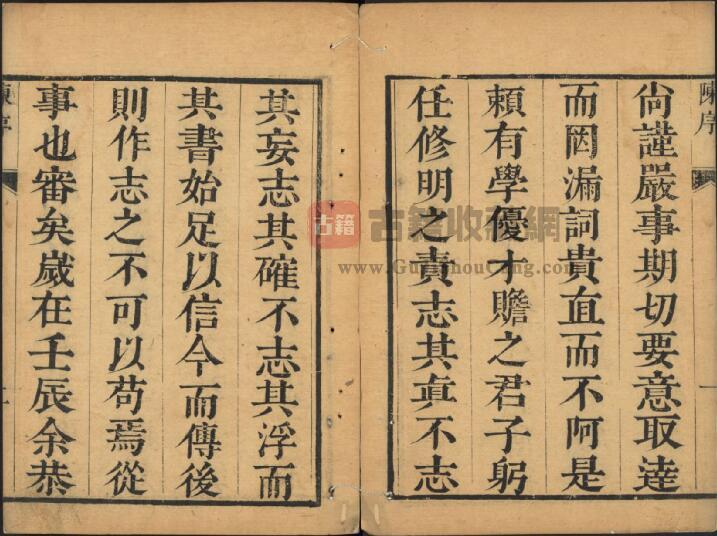 陳序
尙謹嚴事期切要意取達
而罔漏詞貴直而不阿是
頼有學優才贍之君子躬
任修明之責志其眞不志
一
其妄志其確不志其浮而
其書始足以信今而傳後
則作志之不可以苟焉從
事也審矣歲在壬辰余恭
陳序
古籍
古籍收藏網
www.GujiShouCang.com